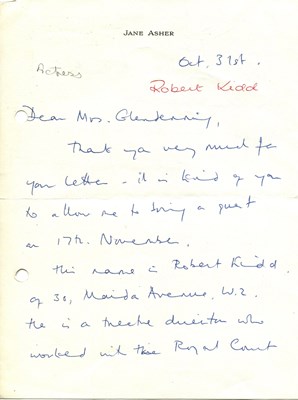 JANE ASHER
Oct. 31st.
Actress
Robert Kidd
Dear Mrs. Glendenning,
Thank you very much for
your letter - it is kind of you
to allow me to bring a guest
on 17th. November.
His name is Robert Kidd
of 30, Maida Avenue. W.2.
He is a theatre director who
worked with the Royal Court